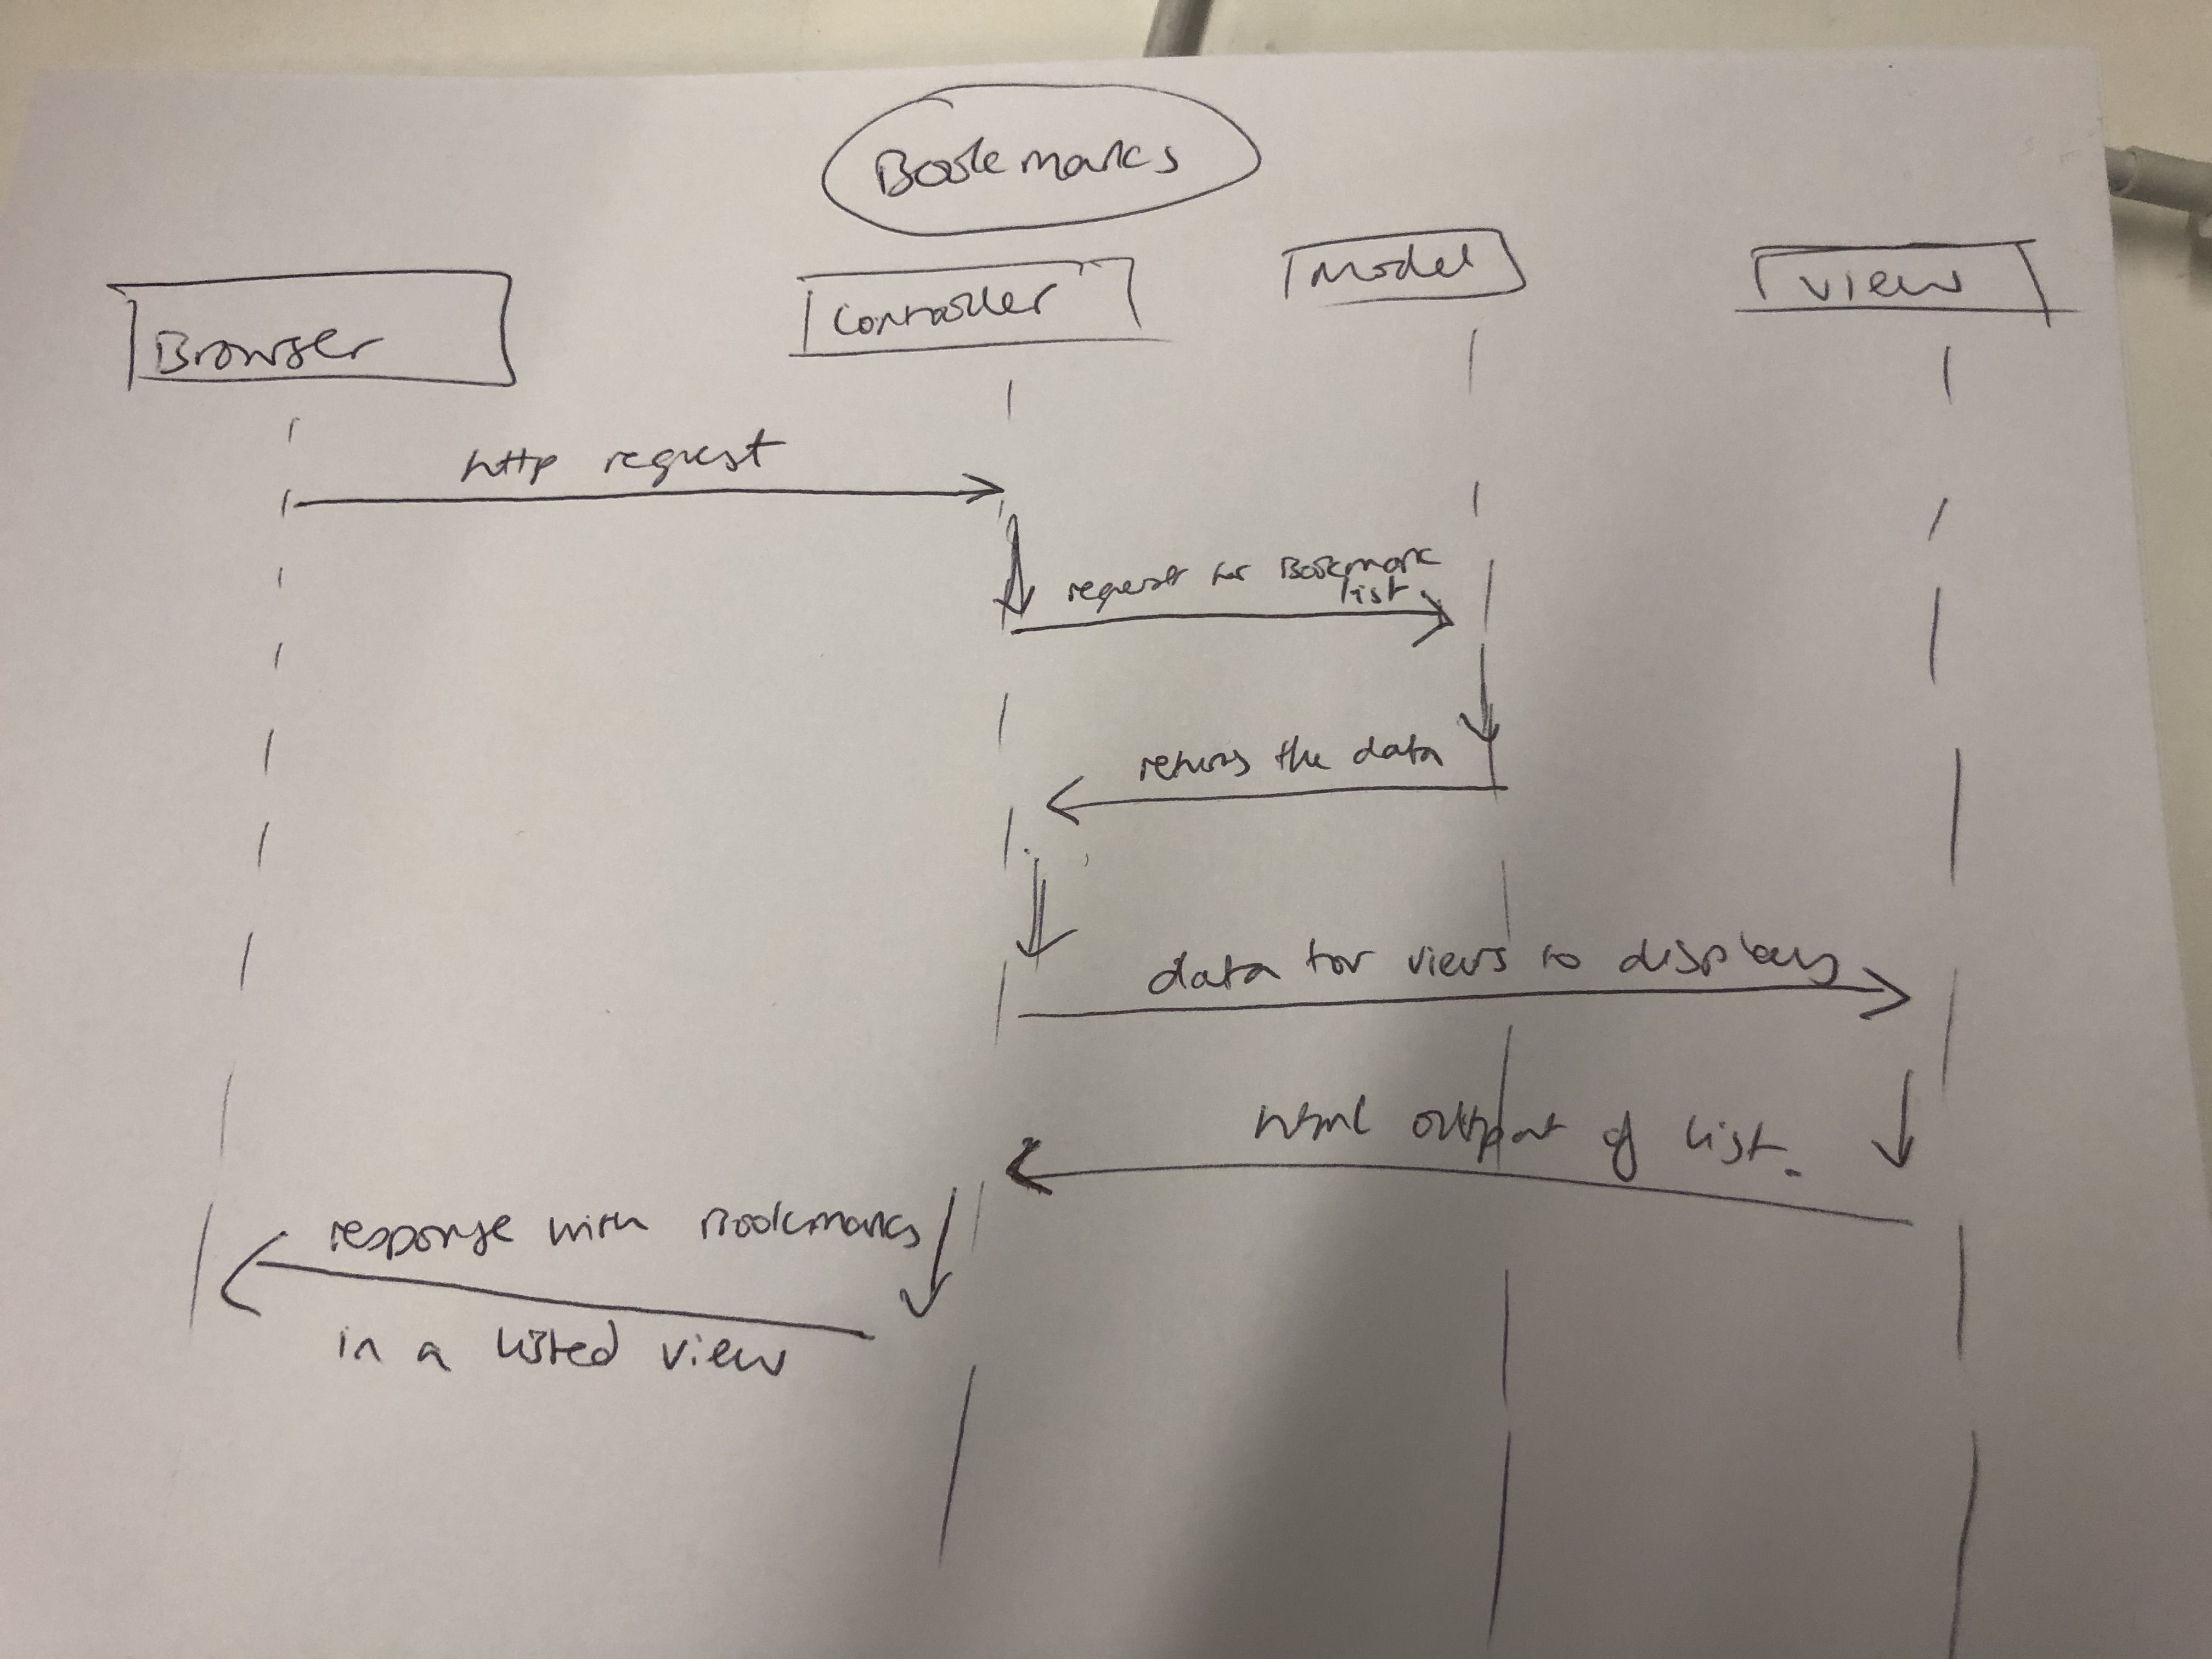 Bookmarks
Browser
Controller
Model
View
http request
request for Bookmark
list
returns the data
data for views to display
html output of list.
response with Bookmarks
in a listed view